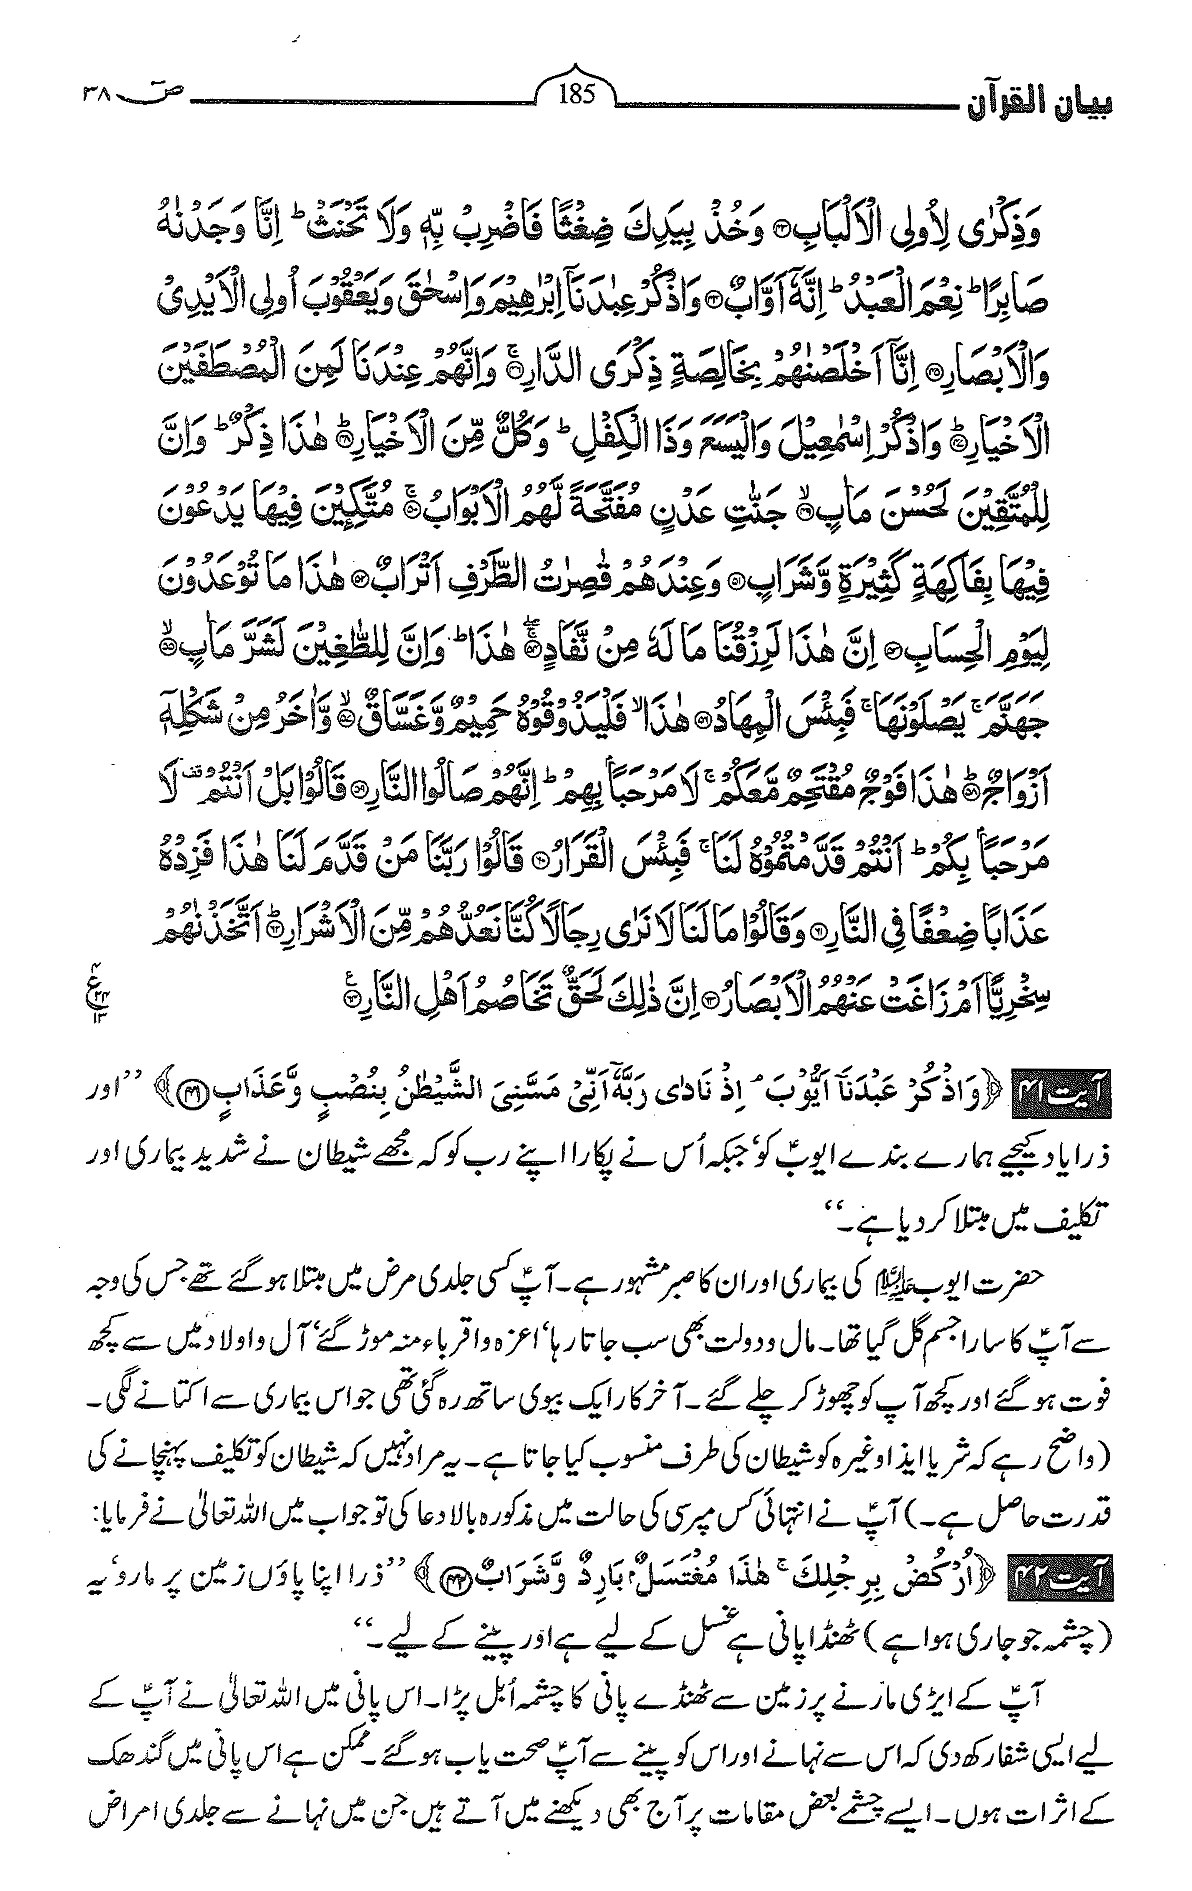 بیان القرآن 185 صٓ ۳۸
وَذِكْرٰى لِاُولِى الْاَلْبَابِ۝۴۳ وَخُذْ بِيَدِكَ ضِغْثًا فَاضْرِبْ بِّهٖ وَلَا تَحْنَثْ ؕ اِنَّا وَجَدْنٰهُ
صَابِرًا ؕ نِعْمَ الْعَبْدُ ؕ اِنَّهٗۤ اَوَّابٌ۝۴۴ وَاذْكُرْ عِبٰدَنَاۤ اِبْرٰهِيْمَ وَاِسْحٰقَ وَيَعْقُوْبَ اُولِى الْاَيْدِىْ
وَالْاَبْصَارِ۝۴۵ اِنَّاۤ اَخْلَصْنٰهُمْ بِخَالِصَةٍ ذِكْرَى الدَّارِۚ۝۴۶ وَاِنَّهُمْ عِنْدَنَا لَمِنَ الْمُصْطَفَيْنَ
الْاَخْيَارِؕ۝۴۷ وَاذْكُرْ اِسْمٰعِيْلَ وَالْيَسَعَ وَذَا الْكِفْلِ ؕ وَكُلٌّ مِّنَ الْاَخْيَارِؕ۝۴۸ هٰذَا ذِكْرٌ ؕ وَاِنَّ
لِلْمُتَّقِيْنَ لَحُسْنَ مَاٰبٍۙ۝۴۹ جَنّٰتِ عَدْنٍ مُّفَتَّحَةً لَّهُمُ الْاَبْوَابُۚ۝۵۰ مُتَّكِـِٕيْنَ فِيْهَا يَدْعُوْنَ
فِيْهَا بِفَاكِهَةٍ كَثِيْرَةٍ وَّشَرَابٍ۝۵۱ وَعِنْدَهُمْ قٰصِرٰتُ الطَّرْفِ اَتْرَابٌ۝۵۲ هٰذَا مَا تُوْعَدُوْنَ
لِيَوْمِ الْحِسَابِ۝۵۳ اِنَّ هٰذَا لَرِزْقُنَا مَا لَهٗ مِنْ نَّفَادٍۚۖ۝۵۴ هٰذَا ؕ وَاِنَّ لِلطّٰغِيْنَ لَشَرَّ مَاٰبٍۙ۝۵۵
جَهَنَّمَ ۚ يَصْلَوْنَهَا ۚ فَبِئْسَ الْمِهَادُ۝۵۶ هٰذَا ۙ فَلْيَذُوْقُوْهُ حَمِيْمٌ وَّغَسَّاقٌۙ۝۵۷ وَّاٰخَرُ مِنْ شَكْلِهٖۤ
اَزْوَاجٌؕ۝۵۸ هٰذَا فَوْجٌ مُّقْتَحِمٌ مَّعَكُمْ ۚ لَا مَرْحَبًۢا بِهِمْ ؕ اِنَّهُمْ صَالُوا النَّارِ۝۵۹ قَالُوْا بَلْ اَنْتُمْ ۫ لَا
مَرْحَبًۢا بِكُمْ ؕ اَنْتُمْ قَدَّمْتُمُوْهُ لَنَا ۚ فَبِئْسَ الْقَرَارُ۝۶۰ قَالُوْا رَبَّنَا مَنْ قَدَّمَ لَنَا هٰذَا فَزِدْهُ
عَذَابًا ضِعْفًا فِى النَّارِ۝۶۱ وَقَالُوْا مَا لَنَا لَا نَرٰى رِجَالًا كُنَّا نَعُدُّهُمْ مِّنَ الْاَشْرَارِؕ۝۶۲ اَتَّخَذْنٰهُمْ
سِخْرِيًّا اَمْ زَاغَتْ عَنْهُمُ الْاَبْصَارُ۝۶۳ اِنَّ ذٰلِكَ لَحَقٌّ تَخَاصُمُ اَهْلِ النَّارِ۝۶۴
آیت ۴۱ ﴿وَاذْكُرْ عَبْدَنَاۤ اَيُّوْبَ ۘ اِذْ نَادٰى رَبَّهٗۤ اَنِّىْ مَسَّنِىَ الشَّيْطٰنُ بِنُصْبٍ وَّعَذَابٍ۝۴۱﴾ ’’اور
ذرا یاد کیجیے ہمارے بندے ایوبؑ کو‘ جبکہ اُس نے پکارا اپنے رب کو کہ مجھے شیطان نے شدید بیماری اور
تکلیف میں مبتلا کر دیا ہے۔‘‘
حضرت ایوب علیہ السلام کی بیماری اور ان کا صبر مشہور ہے۔ آپؑ کسی جلدی مرض میں مبتلا ہو گئے تھے جس کی وجہ
سے آپؑ کا سارا جسم گل گیا تھا۔ مال و دولت بھی سب جاتا رہا‘ اعزہ و اقرباء منہ موڑ گئے‘ آل و اولاد میں سے کچھ
فوت ہو گئے اور کچھ آپ کو چھوڑ کر چلے گئے۔ آخر کار ایک بیوی ساتھ رہ گئی تھی جو اس بیماری سے اکتانے لگی۔
(واضح رہے کہ شر یا ایذا وغیرہ کو شیطان کی طرف منسوب کیا جاتا ہے۔ یہ مراد نہیں کہ شیطان کو تکلیف پہنچانے کی
قدرت حاصل ہے۔) آپؑ نے انتہائی کس مپرسی کی حالت میں مذکورہ بالا دعا کی تو جواب میں اللہ تعالیٰ نے فرمایا:
آیت ۴۲ ﴿اُرْكُضْ بِرِجْلِكَ ۚ هٰذَا مُغْتَسَلٌۢ بَارِدٌ وَّشَرَابٌ۝۴۲﴾ ’’ذرا اپنا پاؤں زمین پر مارو‘ یہ
(چشمہ جو جاری ہوا ہے) ٹھنڈا پانی ہے غسل کے لیے ہے اور پینے کے لیے۔‘‘
آپؑ کے ایڑی مارنے پر زمین سے ٹھنڈے پانی کا چشمہ اُبل پڑا۔ اس پانی میں اللہ تعالیٰ نے آپؑ کے
لیے ایسی شفا رکھ دی کہ اس سے نہانے اور اس کو پینے سے آپؑ صحت یاب ہو گئے۔ ممکن ہے اس پانی میں گندھک
کے اثرات ہوں۔ ایسے چشمے بعض مقامات پر آج بھی دیکھنے میں آتے ہیں جن میں نہانے سے جلدی امراض